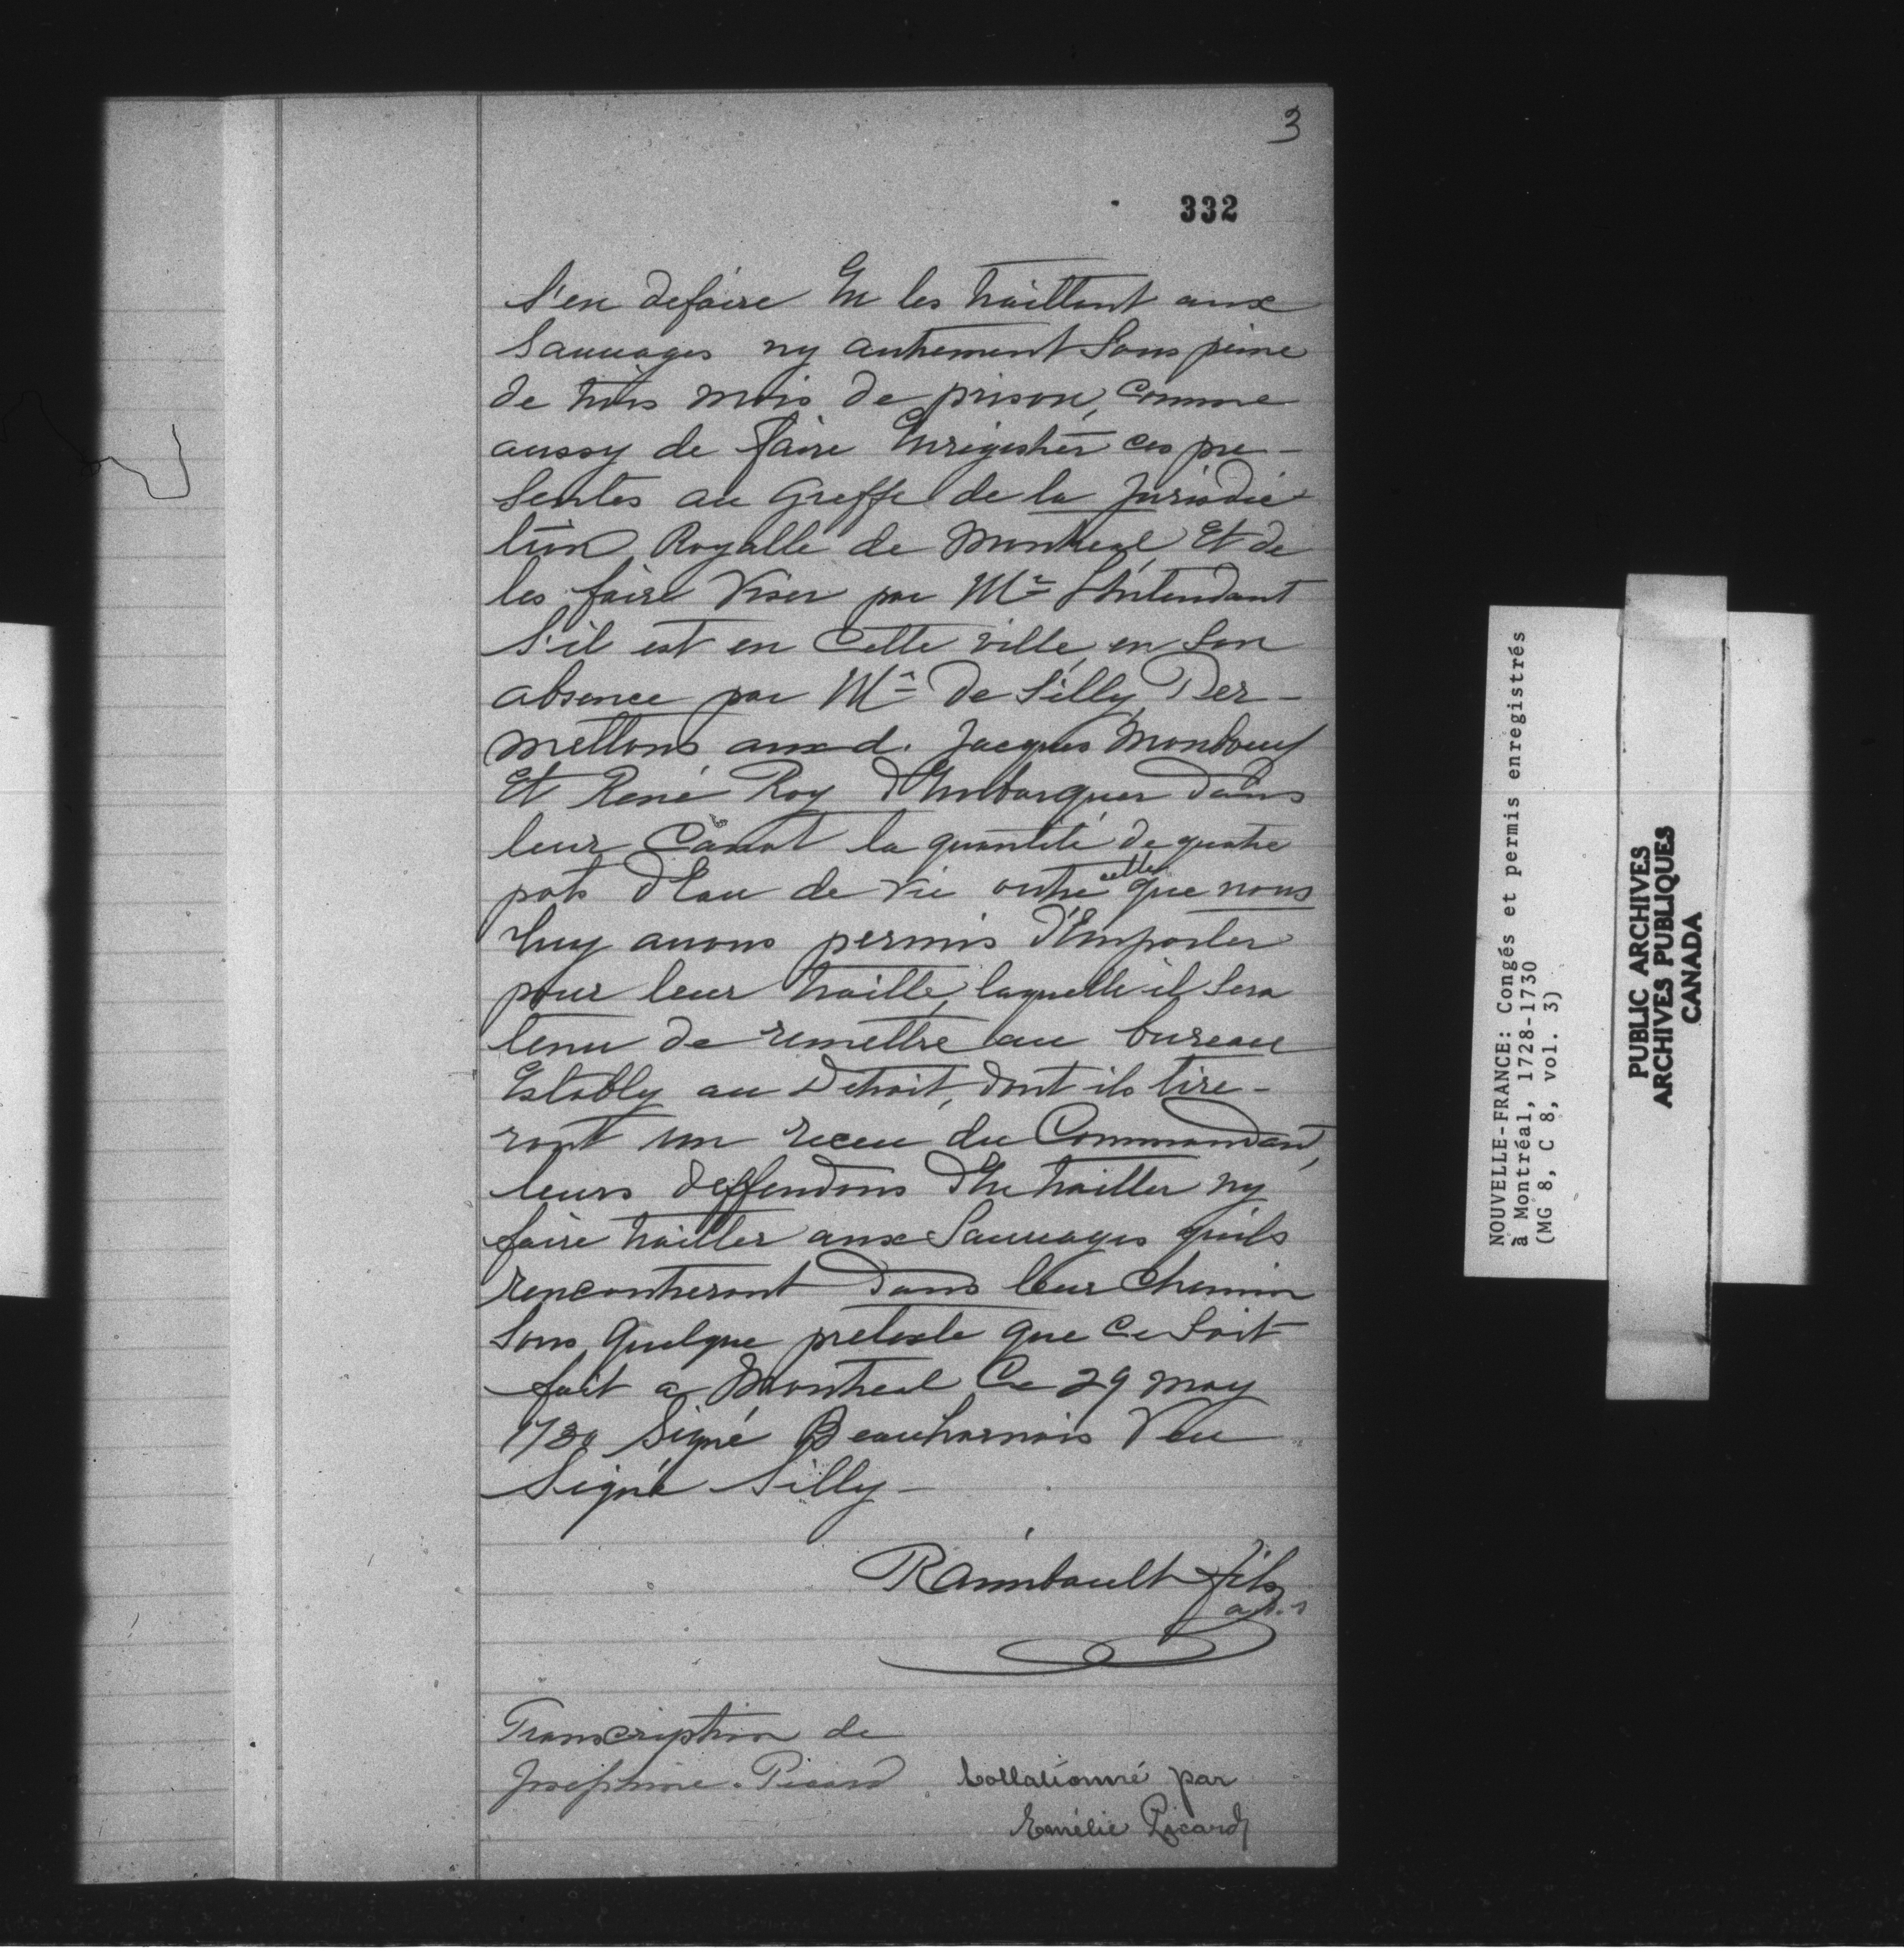 3
332
s'en defaire En les traittant aux
Sauuages ny autrement Sous peine
de trois mois de prison, Comme
aussy de faire Enregistrer ces pre-
sentes au Greffe de la Jurisdic-
tion Royalle de Montreal Et de
les faire Viser par Mr L'Intendant
S'il est en Cette ville en Son
absence par Mr de Silly, Per-
mettons aux d. Jacques Monboeuf
Et René Roy d'Embarquer dans
leur Canot la quantité de quatre
pots d'Eau de vie outre celle que nous
luy auons permis d'Emporter
pour leur traitte, laquelle il Sera
tenu de remettre au bureau
Estably au Detroit, dont ils tire-
ront un receu du Commandant,
leurs deffendons d'En traitter ny
faire traitter aux Sauuages qu'ils
rencontreront dans leur Chemin
Sous quelque pretexte que Ce Soit
fait a Montreal Ce 29 may
1730 Signé Beauharnois Veu
Signé Silly-
Raimbault fils
Transcription de
Josephine. Picard
Collationné par
Emélie Picard
NOUVELLE-FRANCE: Congés et permis enregistrés
à Montréal, 1728-1730
(MG 8, C 8, vol. 3)
PUBLIC ARCHIVES
ARCHIVES PUBLIQUES
CANADA